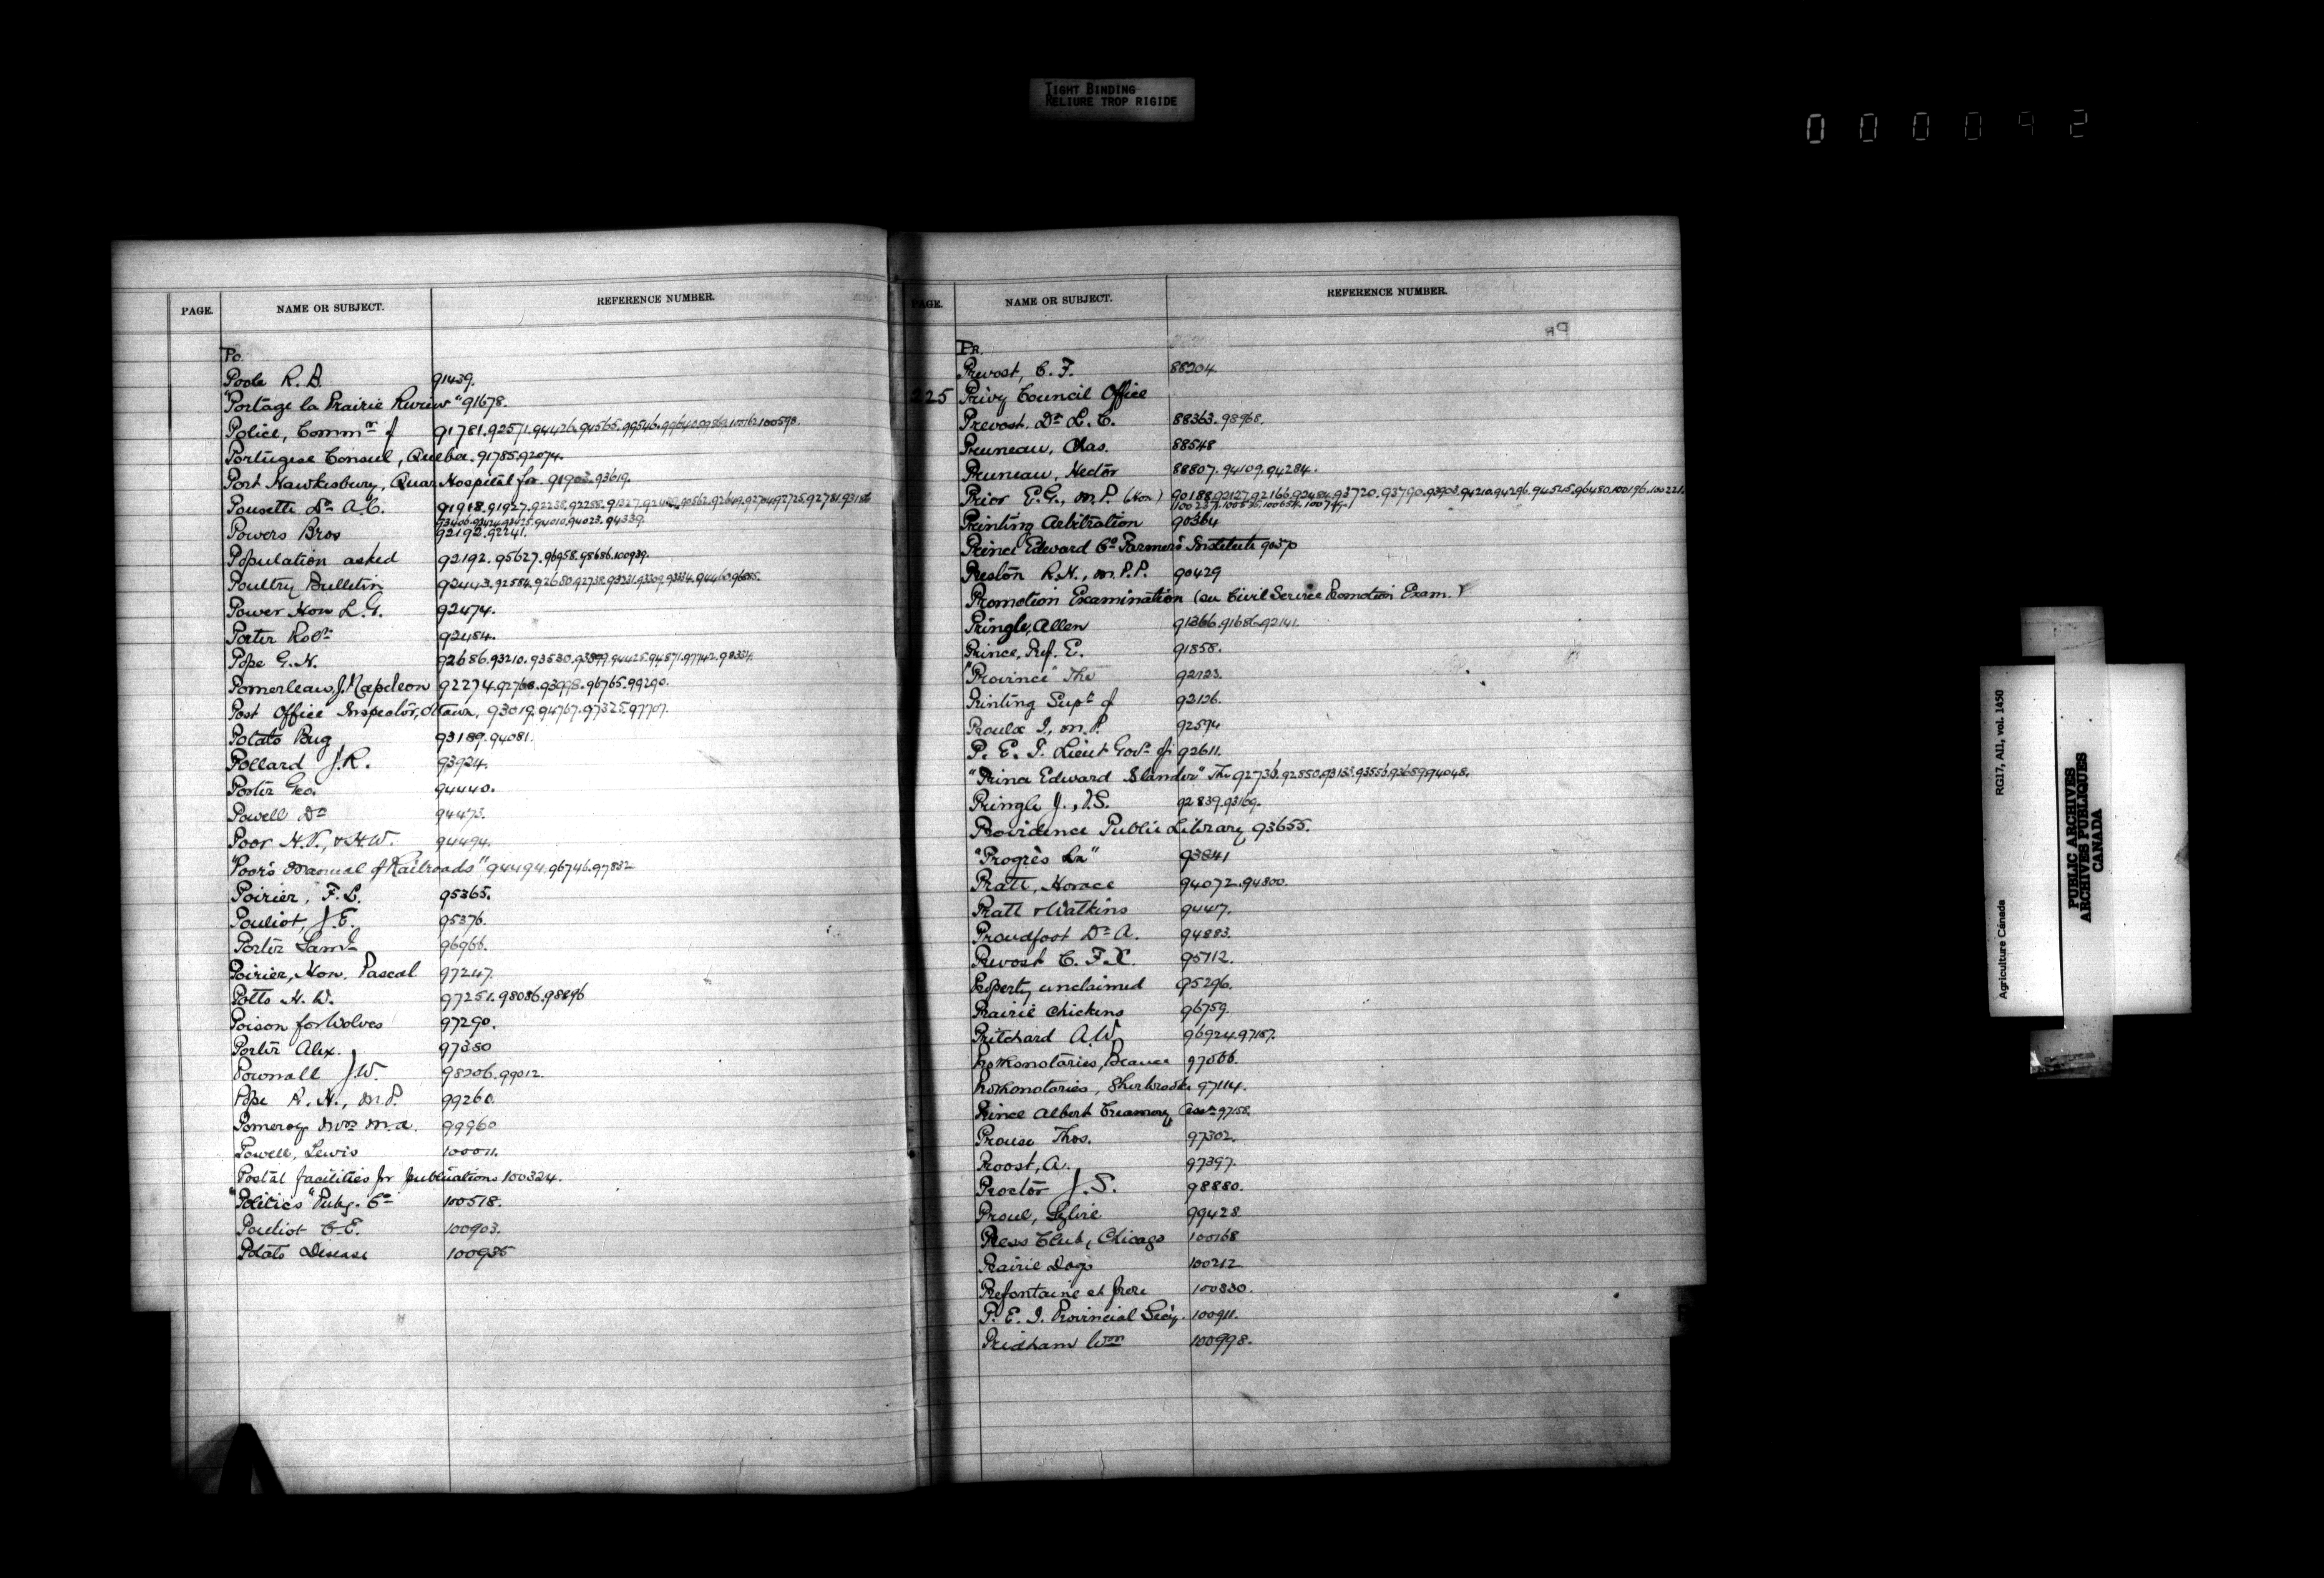 TIGHT BINDING
RELIURE TROP RIGIDE
000092
PAGE. NAME OR SUBJECT. REFERENCE NUMBER.
Po.
Poole R. B. 91439.
"Portage la Prairie Review" 91678.
Police, Commr of 91781.92571.94426.94565.99546.
Portugese Consul, Quebec. 91785.92074.
Port Hawkesbury, Quar. Hospital for 91903.93619.
Pousette Dr A. C. 91918.91927.92238.92258.
93406.93424.93925.94010.94023.94339.
Powers Bros 92192.92241.
Population asked 92192.95627.96958.98686.100939.
Poultry Bulletin 92443.92584.92680.92738.
Power Hon L. G. 92474.
Porter Robt 92484.
Pope G. H. 92686.93210.93530.93899.94425.94871.97742.98334.
Pomerleau, J. Napoleon 92274.92768.93998.96765.99290.
Post Office Inspector, Ottawa, 93019.94767.97325.97707.
Potato Bug 93189.94081.
Pollard J. R. 93924.
Porter Geo. 94440.
Powell Dr 94473.
Poor H. V., & H. W. 94494.
"Poor's Manual of Railroads" 94494.96746.97832
Poirier, F. L. 95365.
Pouliot, J. E. 95376.
Porter Saml 96966.
Poirier, Hon. Pascal 97247.
Potts H. W. 97251.98086.98896
Poison for Wolves 97290.
Porter Alex. 97380
Pownall J. W. 98206.99012.
Pope R. H., M.P. 99260.
Pomeroy Mrs M. A. 99960
Powell, Lewis 100011.
Postal facilities for publications 100324.
"Politics" Pubg. Co 100518.
Pouliot C. E. 100903.
Potato Disease 100935
PAGE. NAME OR SUBJECT. REFERENCE NUMBER.
Pr.
Prevost, C. F. 88204.
225 Privy Council Office
Prevost, Dr L. C. 88363.98968.
Pruneau, Chas. 88548
Pruneau, Hector 88807.94109.94284.
Prior E. G., M.P. (Hon) 90188.92127.92166.92484.93720.93790.93903.94210.94296.94525.96480.100196.100221.
Printing Arbitration 90364
Prince Edward Co Farmers Institute 90370
Preston R. H., M.P.P. 90429
Promotion Examination (see Civil Service Promotion Exam.)
Pringle, Allen 91366.91686.92141.
Prince, Prof. E. 91858.
"Province" The 92123.
Printing Supt of 92136.
Proulx I., M.P. 92574
P. E. I. Lieut Govr of 92611.
"Prince Edward Islander" The 92736.92850.93133.93556.93659.94048.
Pringle J., I.S. 92839.93169.
Providence Public Library 93655.
"Progrès Le" 93841
Pratt, Horace 94072.94800.
Pratt & Watkins 94417.
Proudfoot Dr A. 94883.
Prevost C. F. X. 95112.
Property unclaimed 95296.
Prairie Chickens 96759.
Pritchard A. W. 96924.97187.
Prothonotaries, Beauce 97066.
Prothonotaries, Sherbrooke 97114.
Prince Albert Creamery Assn 97158.
Prouse Thos. 97302.
Proost, A. 97397.
Proctor J. S. 98880.
Proul, Sylvie 99428
Press Club, Chicago 100168
Prairie Dogs 100212
Prefontaine et frere 100830.
P. E. I. Provincial Secy. 100911.
Pridham Wm 100998.
Agriculture Canada RG17, AII, vol. 1450
PUBLIC ARCHIVES
ARCHIVES PUBLIQUES
CANADA